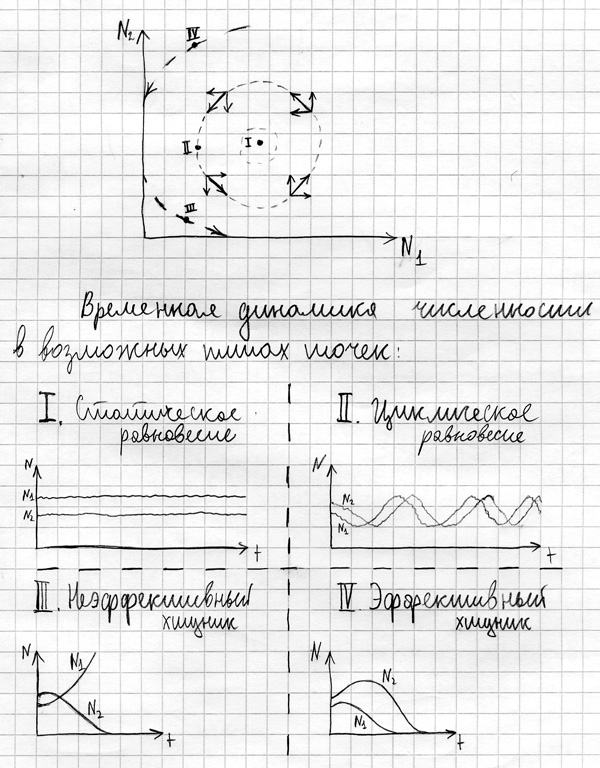 N₂
IV
II
I
III
N₁
Временная динамика численности
в возможных типах точек:
I. Статическое
равновесие
N
N₁
N₂
t
II. Циклическое
равновесие
N
N₂
N₁
t
III. Неэффективный
хищник
N
N₁
N₂
t
IV. Эффективный
хищник
N
N₂
N₁
t